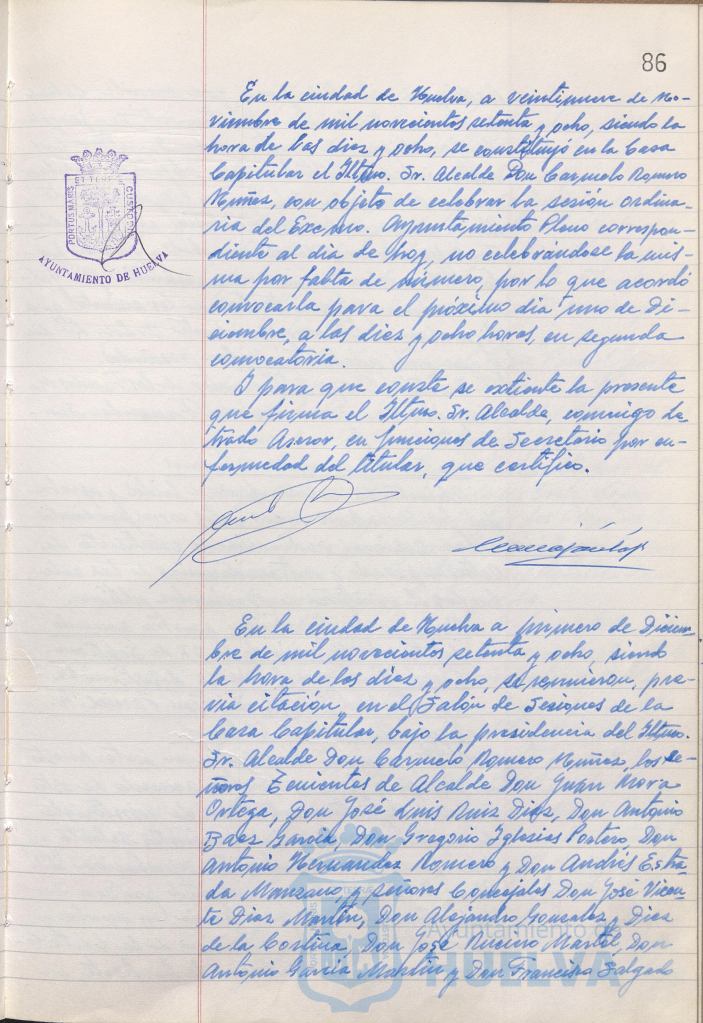 86
En la ciudad de Huelva, a veintinueve de No-
viembre de mil novecientos setenta y ocho, siendo la
hora de las diez y ocho, se constituyó en la Casa
Capitular el Iltmo. Sr. Alcalde Don Carmelo Romero
Núñez, con objeto de celebrar la sesión ordina-
ria del Excmo. Ayuntamiento Pleno correspon-
diente al día de hoy, no celebrándose la mis-
ma por falta de número, por lo que acordó
convocarla para el próximo día uno de Di-
ciembre, a las diez y ocho horas, en segunda
convocatoria.
Y para que conste se extiende la presente
que firma el Iltmo. Sr. Alcalde, conmigo Le-
trado Asesor, en funciones de Secretario por en-
fermedad del titular, que certifico.
PORTUS MARIS
ET TERRE
CUSTODIA
AYUNTAMIENTO DE HUELVA
En la ciudad de Huelva a primero de Diciem-
bre de mil novecientos setenta y ocho, siendo
la hora de las diez y ocho, se reunieron, pre-
via citación, en el Salón de Sesiones de la
Casa Capitular, bajo la presidencia del Iltmo.
Sr. Alcalde Don Carmelo Romero Núñez, los se-
ñores Tenientes de Alcalde Don Juan Mora
Ortega, Don José Luis Ruiz Díaz, Don Antonio
Báez García, Don Gregorio Iglesias Portero, Don
Antonio Hernández Romero y Don Andrés Estra-
da Manzano, y señores Concejales Don José Vicen-
te Díaz Martín, Don Alejandro González y Díez
de la Cortina, Don José Martel, Don
Antonio García Martín y Don Francisco Salgado
Ayuntamiento de
HUELVA